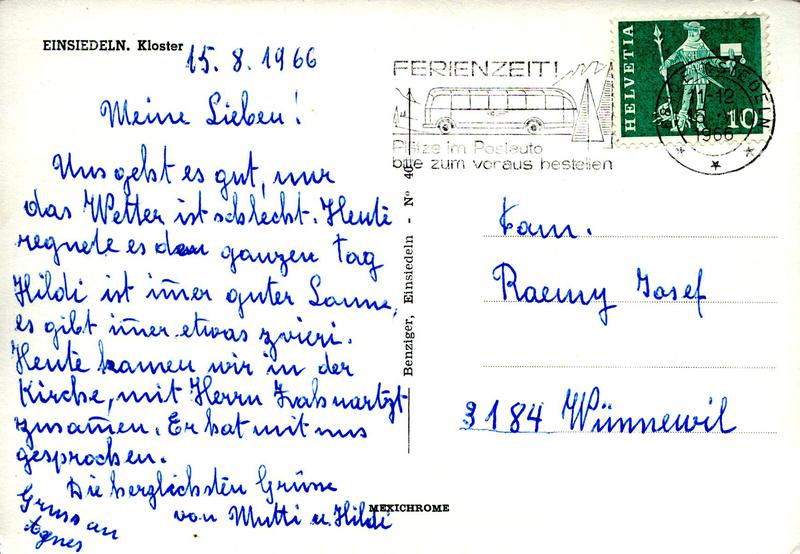 EINSIEDELN. Kloster
15. 8. 1966
Meine Lieben!
Uns geht es gut, nur
das Wetter ist schlecht. Heute
regnete es den ganzen Tag
Hildi ist im̄er guter Laune,
es gibt im̄er etwas zvieri.
Heute kamen wir in der
Kirche, mit Herrn Zahnartzt
zusam̄en. Er hat mit uns
gesprochen.
Die herzlichsten Grüsse
von Mutti u. Hildi
Gruss an
Agnes
Benziger, Einsiedeln - Nº 40
MEXICHROME
FERIENZEIT!
Plätze im Postauto
bitte zum voraus bestellen
HELVETIA
10
EINSIEDELN
11-12
15.
1966
Fam.
Raemy Josef
3184 Wünnewil